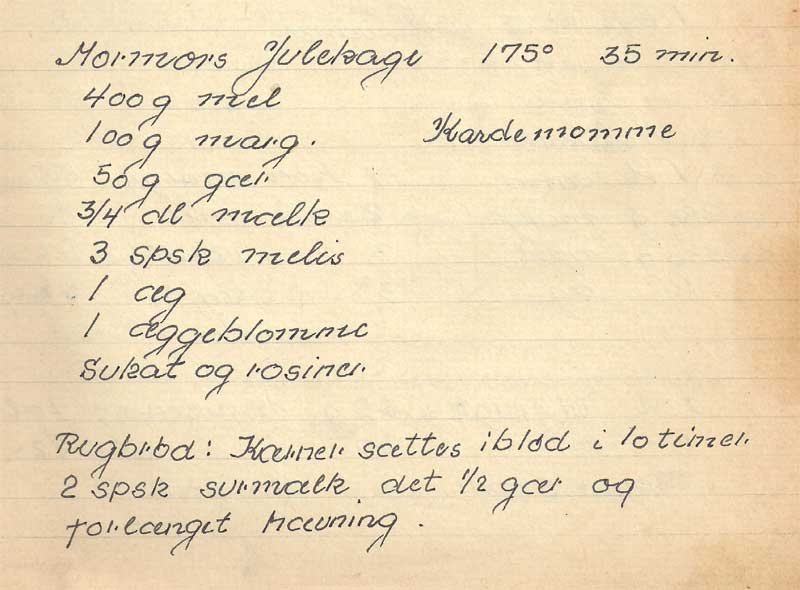 Mormors Julekage 175° 35 min.
400 g mel
100 g marg. Kardemomme
50 g gær
3/4 dl mælk
3 spsk melis
1 æg
1 æggeblomme
Sukat og rosiner
Rugbrød: Kærner sættes iblød i 10 timer
2 spsk surmælk det 1/2 gær og
forlænget hævning.